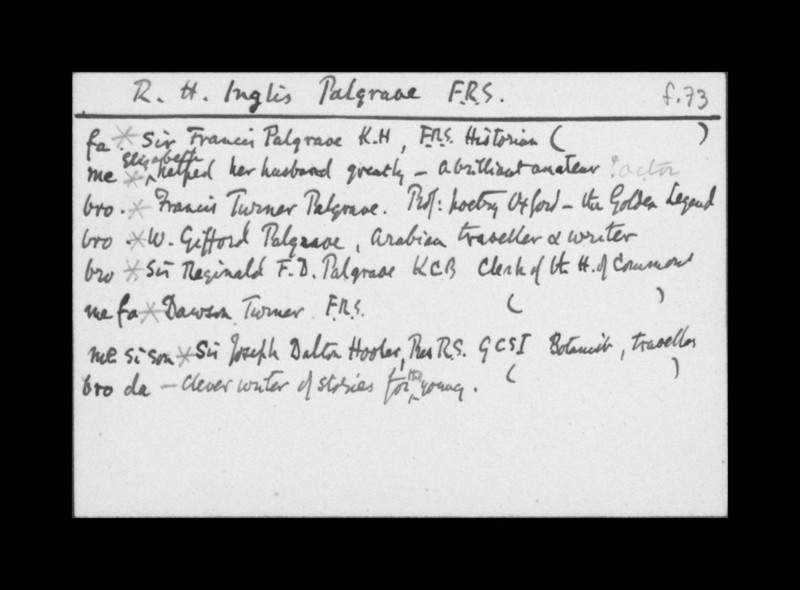 R. H. Inglis Palgrave F.R.S. f.73
fa * Sir Francis Palgrave K.H, F.R.S. Historian ( )
Elizabeth
me * ^ helped her husband greatly – a brilliant amateur ? actor
bro. * Francis Turner Palgrave. Prof: poetry Oxford – the Golden Legend
bro * W. Gifford Palgrave, Arabian traveller & writer
bro * Sir Reginald F.D. Palgrave KCB Clerk of the H. of Commons
me fa * Dawson Turner F.R.S. ( )
me si son * Sir Joseph Dalton Hooker, Pres R.S. GCSI Botanist, traveller
bro da – clever writer of stories for ^ the young. ( )